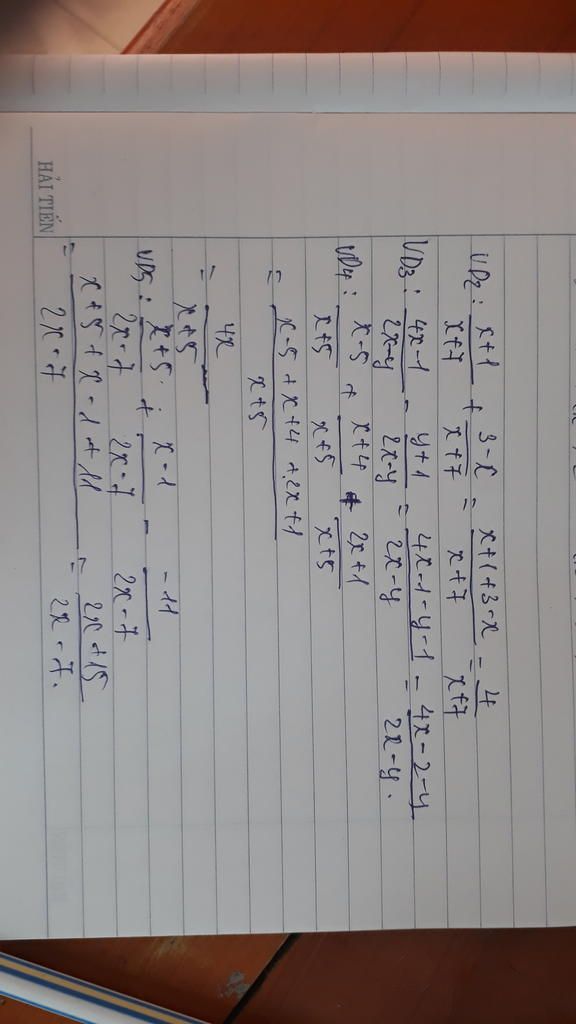 VD2: (x+1)/(x+7) + (3-x)/(x+7) = (x+1+3-x)/(x+7) = 4/(x+7)
VD3: (4x-1)/(2x-y) - (y+1)/(2x-y) = (4x-1-y-1)/(2x-y) = (4x-2-y)/(2x-y).
VD4: (x-5)/(x+5) + (x+4)/(x+5) + (2x+1)/(x+5)
= (x-5+x+4+2x+1)/(x+5)
= 4x/(x+5)
VD5: (x+5)/(2x-7) + (x-1)/(2x-7) - (-11)/(2x-7)
= (x+5+x-1+11)/(2x-7) = (2x+15)/(2x-7).
HẢI TIẾN